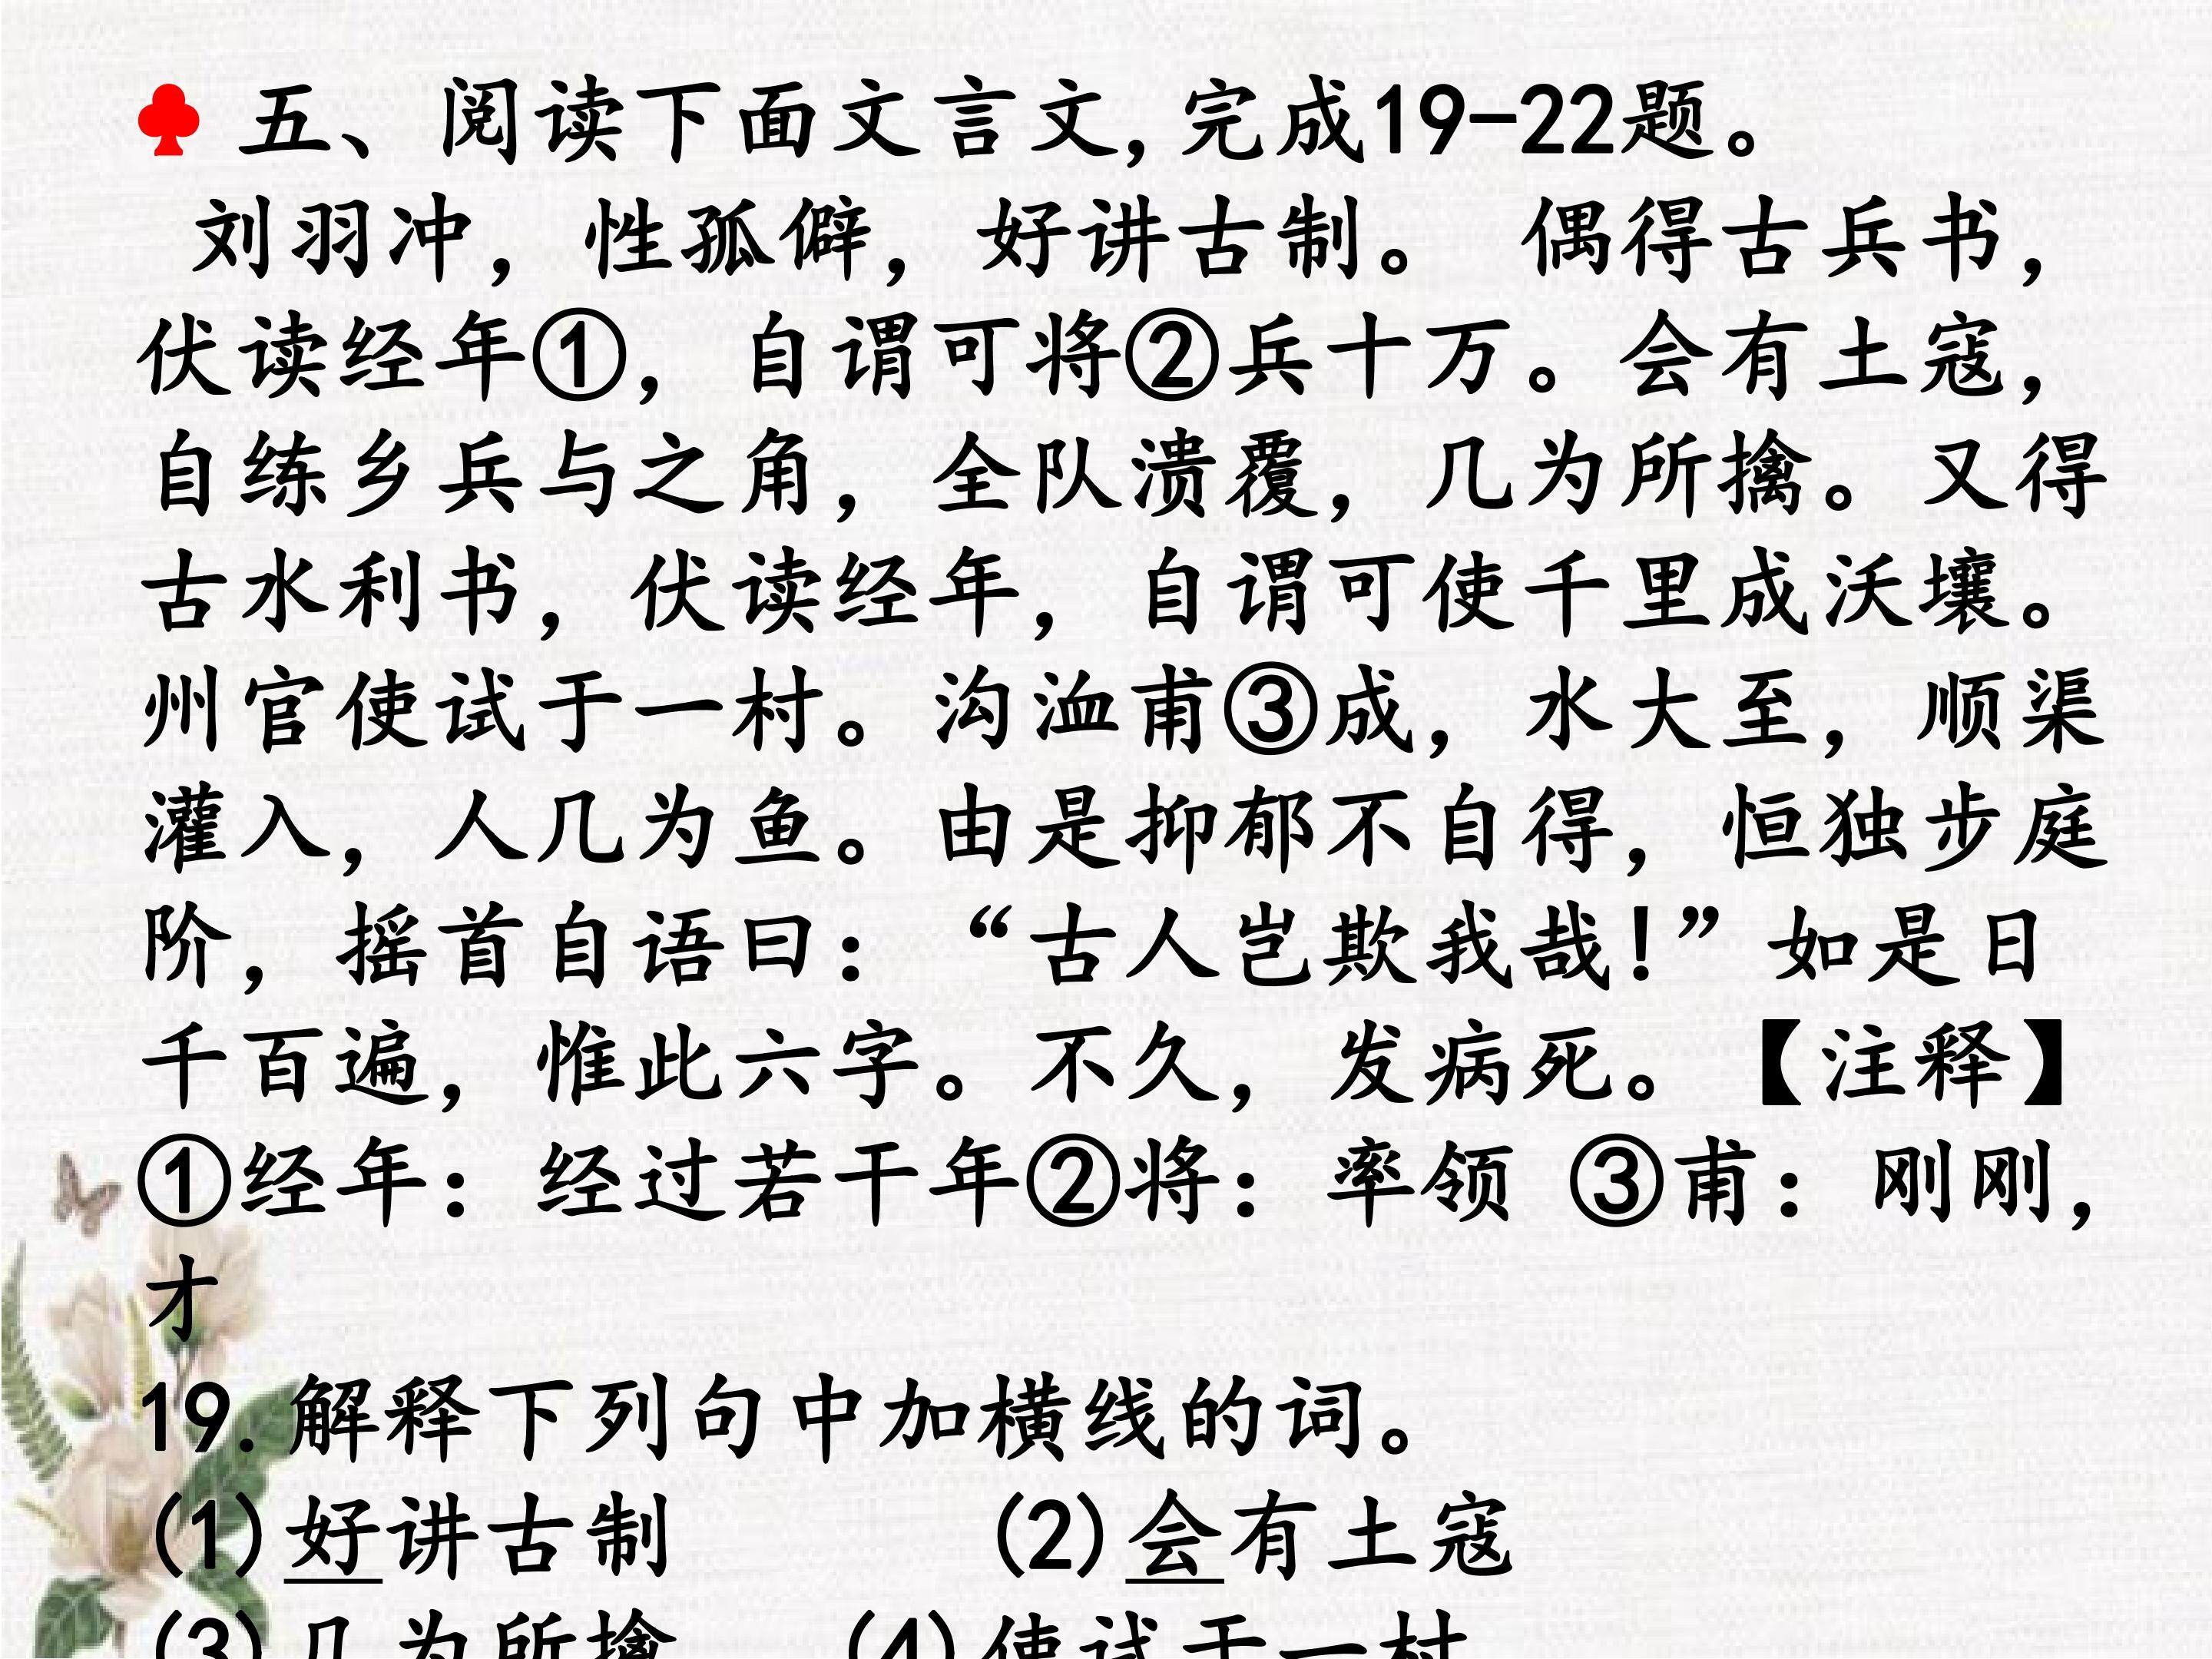 ♣ 五、阅读下面文言文,完成19-22题。
刘羽冲，性孤僻，好讲古制。 偶得古兵书，
伏读经年①，自谓可将②兵十万。会有土寇，
自练乡兵与之角，全队溃覆，几为所擒。又得
古水利书，伏读经年，自谓可使千里成沃壤。
州官使试于一村。沟洫甫③成，水大至，顺渠
灌入，人几为鱼。由是抑郁不自得，恒独步庭
阶，摇首自语曰：“古人岂欺我哉！”如是日
千百遍，惟此六字。不久，发病死。【注释】
①经年：经过若干年②将：率领 ③甫：刚刚，
才
19.解释下列句中加横线的词。
(1)好讲古制 (2)会有土寇
(3)几为所擒 (4)使试于一村